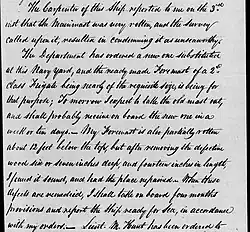 The Carpenter of this Ship, reported to me on the 3rd
inst that the Mainmast was very rotten, and the survey
called upon it, resulted in condemning it as unseaworthy.
The Department has ordered a new one substituted
at this Navy Yard, and the ready made Foremast of a 2d
class Frigate being nearly of the requisite size, is being for
that purpose; To morrow I expect to take the old mast out,
and shall probably receive on board the new one in a
week or ten days. My Foremast is also partially rotten
about 12 feet below the top, but after removing the defective
wood six or seven inches deep, and fourteen inches in length,
I found it sound, and had the place repaired. When these
defects are remedied, I shall take on board four months
provisions and report the Ship ready for Sea, in accordance
with my orders. Lieut. M. Hunt has been ordered to